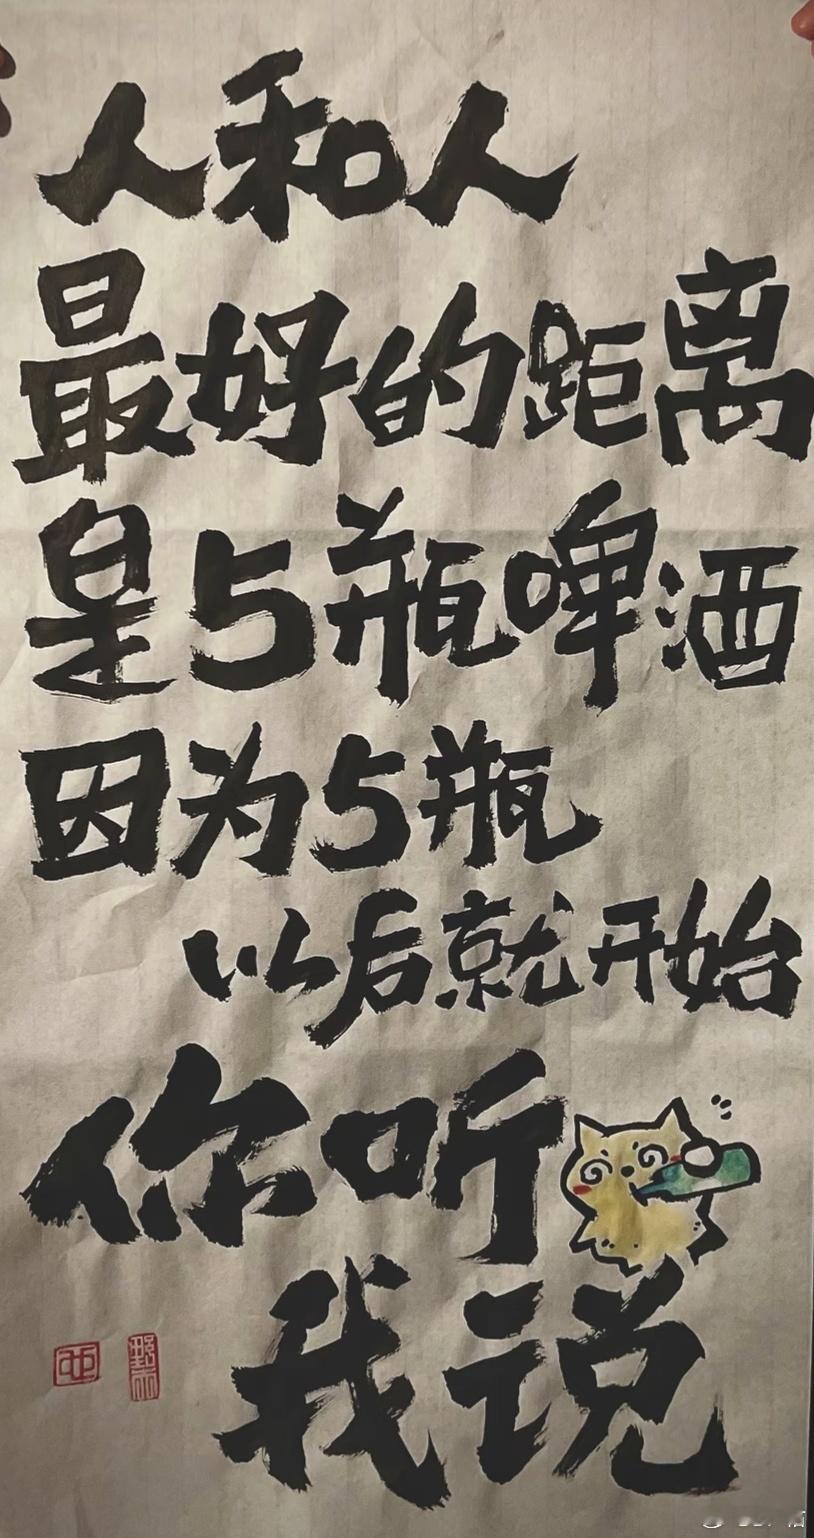 人和人
最好的距离
是5瓶啤酒
因为5瓶
以后就开始
你听
我说